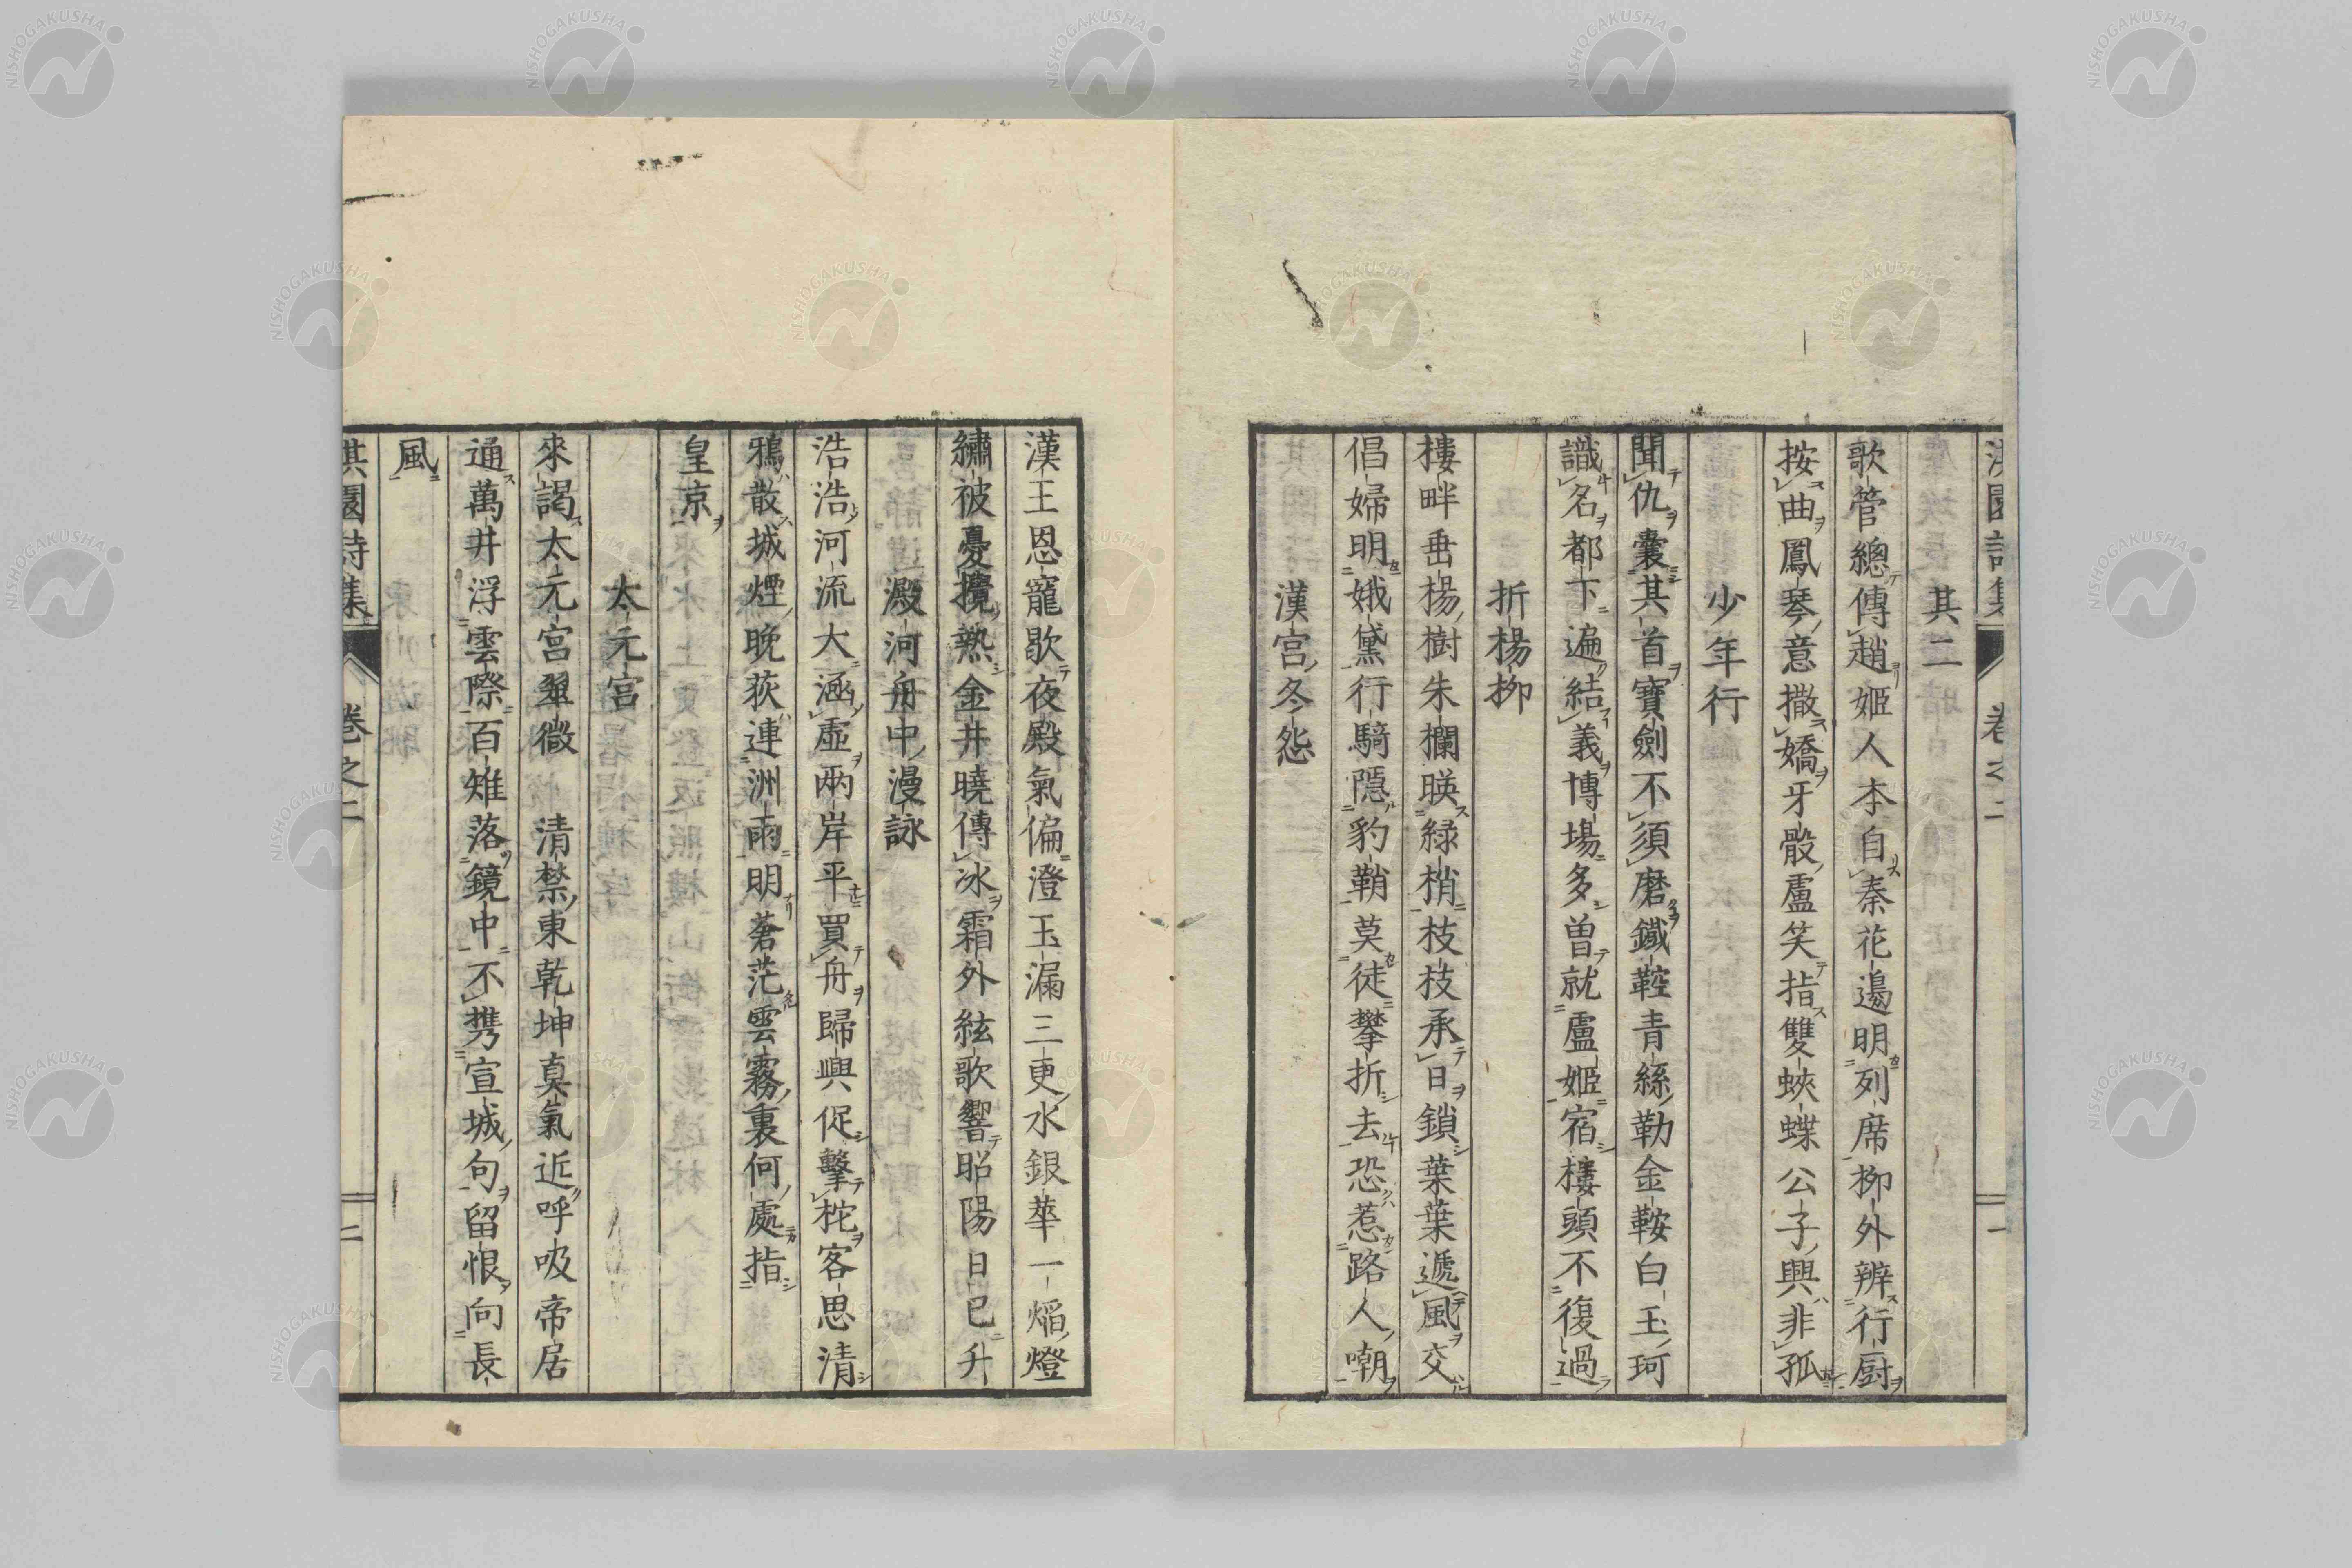 其二
歌管總傳趙姬人本自秦花邊明列席柳外辨行厨
按曲鳳琴意撒嬌牙骰盧笑指雙蛺蝶公子興非孤
少年行
聞仇囊其首寶劍不須磨鐵鞚青絲勒金鞍白玉珂
識名都下遍結義博場多曾就盧姬宿樓頭不復過
折楊柳
樓畔垂楊樹朱欄暎緑梢枝枝承日鎖葉葉遞風交
倡婦明娥黛行騎隱豹鞘莫徒攀折去恐惹路人嘲
漢宮冬怨
漢王恩寵歇夜殿氣偏澄玉漏三更水銀華一熖燈
繡被憂攪熱金井曉傳冰霜外絃歌響昭陽日已升
澱河舟中漫詠
浩浩河流大涵虛兩岸平買舟歸興促擊柁客思清
鴉散城煙晩荻連洲雨明蒼茫雲霧裏何處指
皇京
太元宮
來謁太元宮翠微清禁東乾坤真氣近呼吸帝居
通萬井浮雲際百雉落鏡中不携宣城句留恨向長
風
淇園詩集 卷之二 二